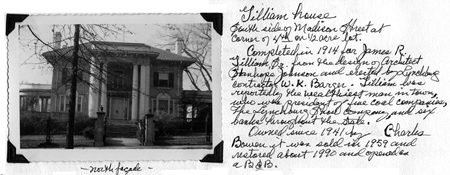 Gilliam House
South side of Madison Street at
Corner of 4th on 1/2 acre lot.
Completed in 1914 for James R.
Gilliam Sr. from the design of Architect
Stanhope Johnson and erected by Lynchburg
contractor W. K. Barger. Gilliam was
reportedly the wealthiest man in town,
who was president of five coal companies,
The Lynchburg Shoe Company, and six
banks throughout the State.
Owned since 1941 by Charles
Bowen it was sold in 1959 and
restored about 1990 and opened as
a B&B.
north façade -